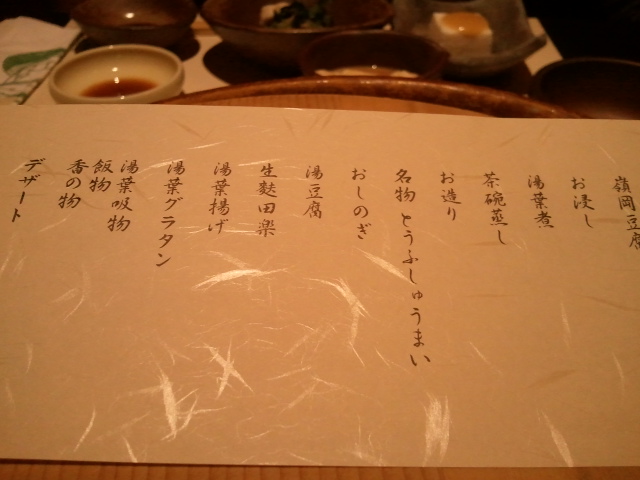 嶺岡豆腐
お浸し
湯葉煮
茶碗蒸し
お造り
名物 とうふしゅうまい
おしのぎ
湯豆腐
生麩田楽
湯葉揚げ
湯葉グラタン
湯葉吸物
飯物
香の物
デザート